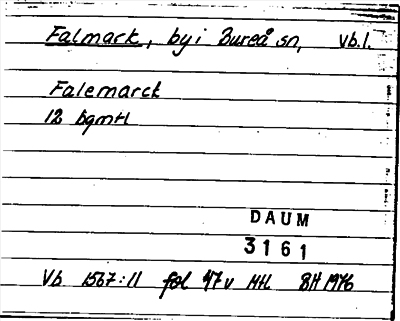 Falmark, by i Bureå sn, Vb.l.
Falemarck
12 bgmtl
DAUM
3161
Vb 1567:11 fol 47v Mtl BH 1976